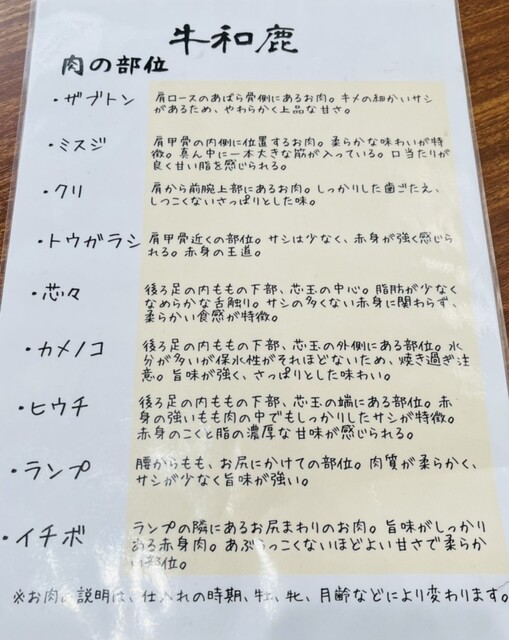 牛和鹿
肉の部位
・ザブトン
肩ロースのあばら骨側にあるお肉。キメの細かいサシ
があるため、やわらかく上品な甘さ。
・ミスジ
肩甲骨の内側に位置するお肉。柔らかな味わいが特
徴。真ん中に一本大きな筋が入っている。口当たりが
良く甘い脂を感じられる。
・クリ
肩から前腕上部にあるお肉。しっかりした歯ごたえ、
しつこくないさっぱりとした味。
・トウガラシ
肩甲骨近くの部位。サシは少なく、赤身が強く感じら
れる。赤身の王道。
・芯々
後ろ足の内ももの下部、芯玉の中心。脂肪が少なく
なめらかな舌触り。サシの多くない赤身に関わらず、
柔らかい食感が特徴。
・カメノコ
後ろ足の内ももの下部、芯玉の外側にある部位。水
分が多いが保水性がそれほどないため、焼き過ぎ注
意。旨味が強く、さっぱりとした味わい。
・ヒウチ
後ろ足の内ももの下部、芯玉の端にある部位。赤
身の強いもも肉の中でもしっかりしたサシが特徴。
赤身のこくと脂の濃厚な甘味が感じられる。
・ランプ
腰からもも、お尻にかけての部位。肉質が柔らかく、
サシが少なく旨味が強い。
・イチボ
ランプの隣にあるお尻まわりのお肉。旨味がしっかり
ある赤身肉。あぶらっこくないほどよい甘さで柔らか
い部位。
※お肉の説明は、仕入れの時期、牡、牝、月齢などにより変わります。